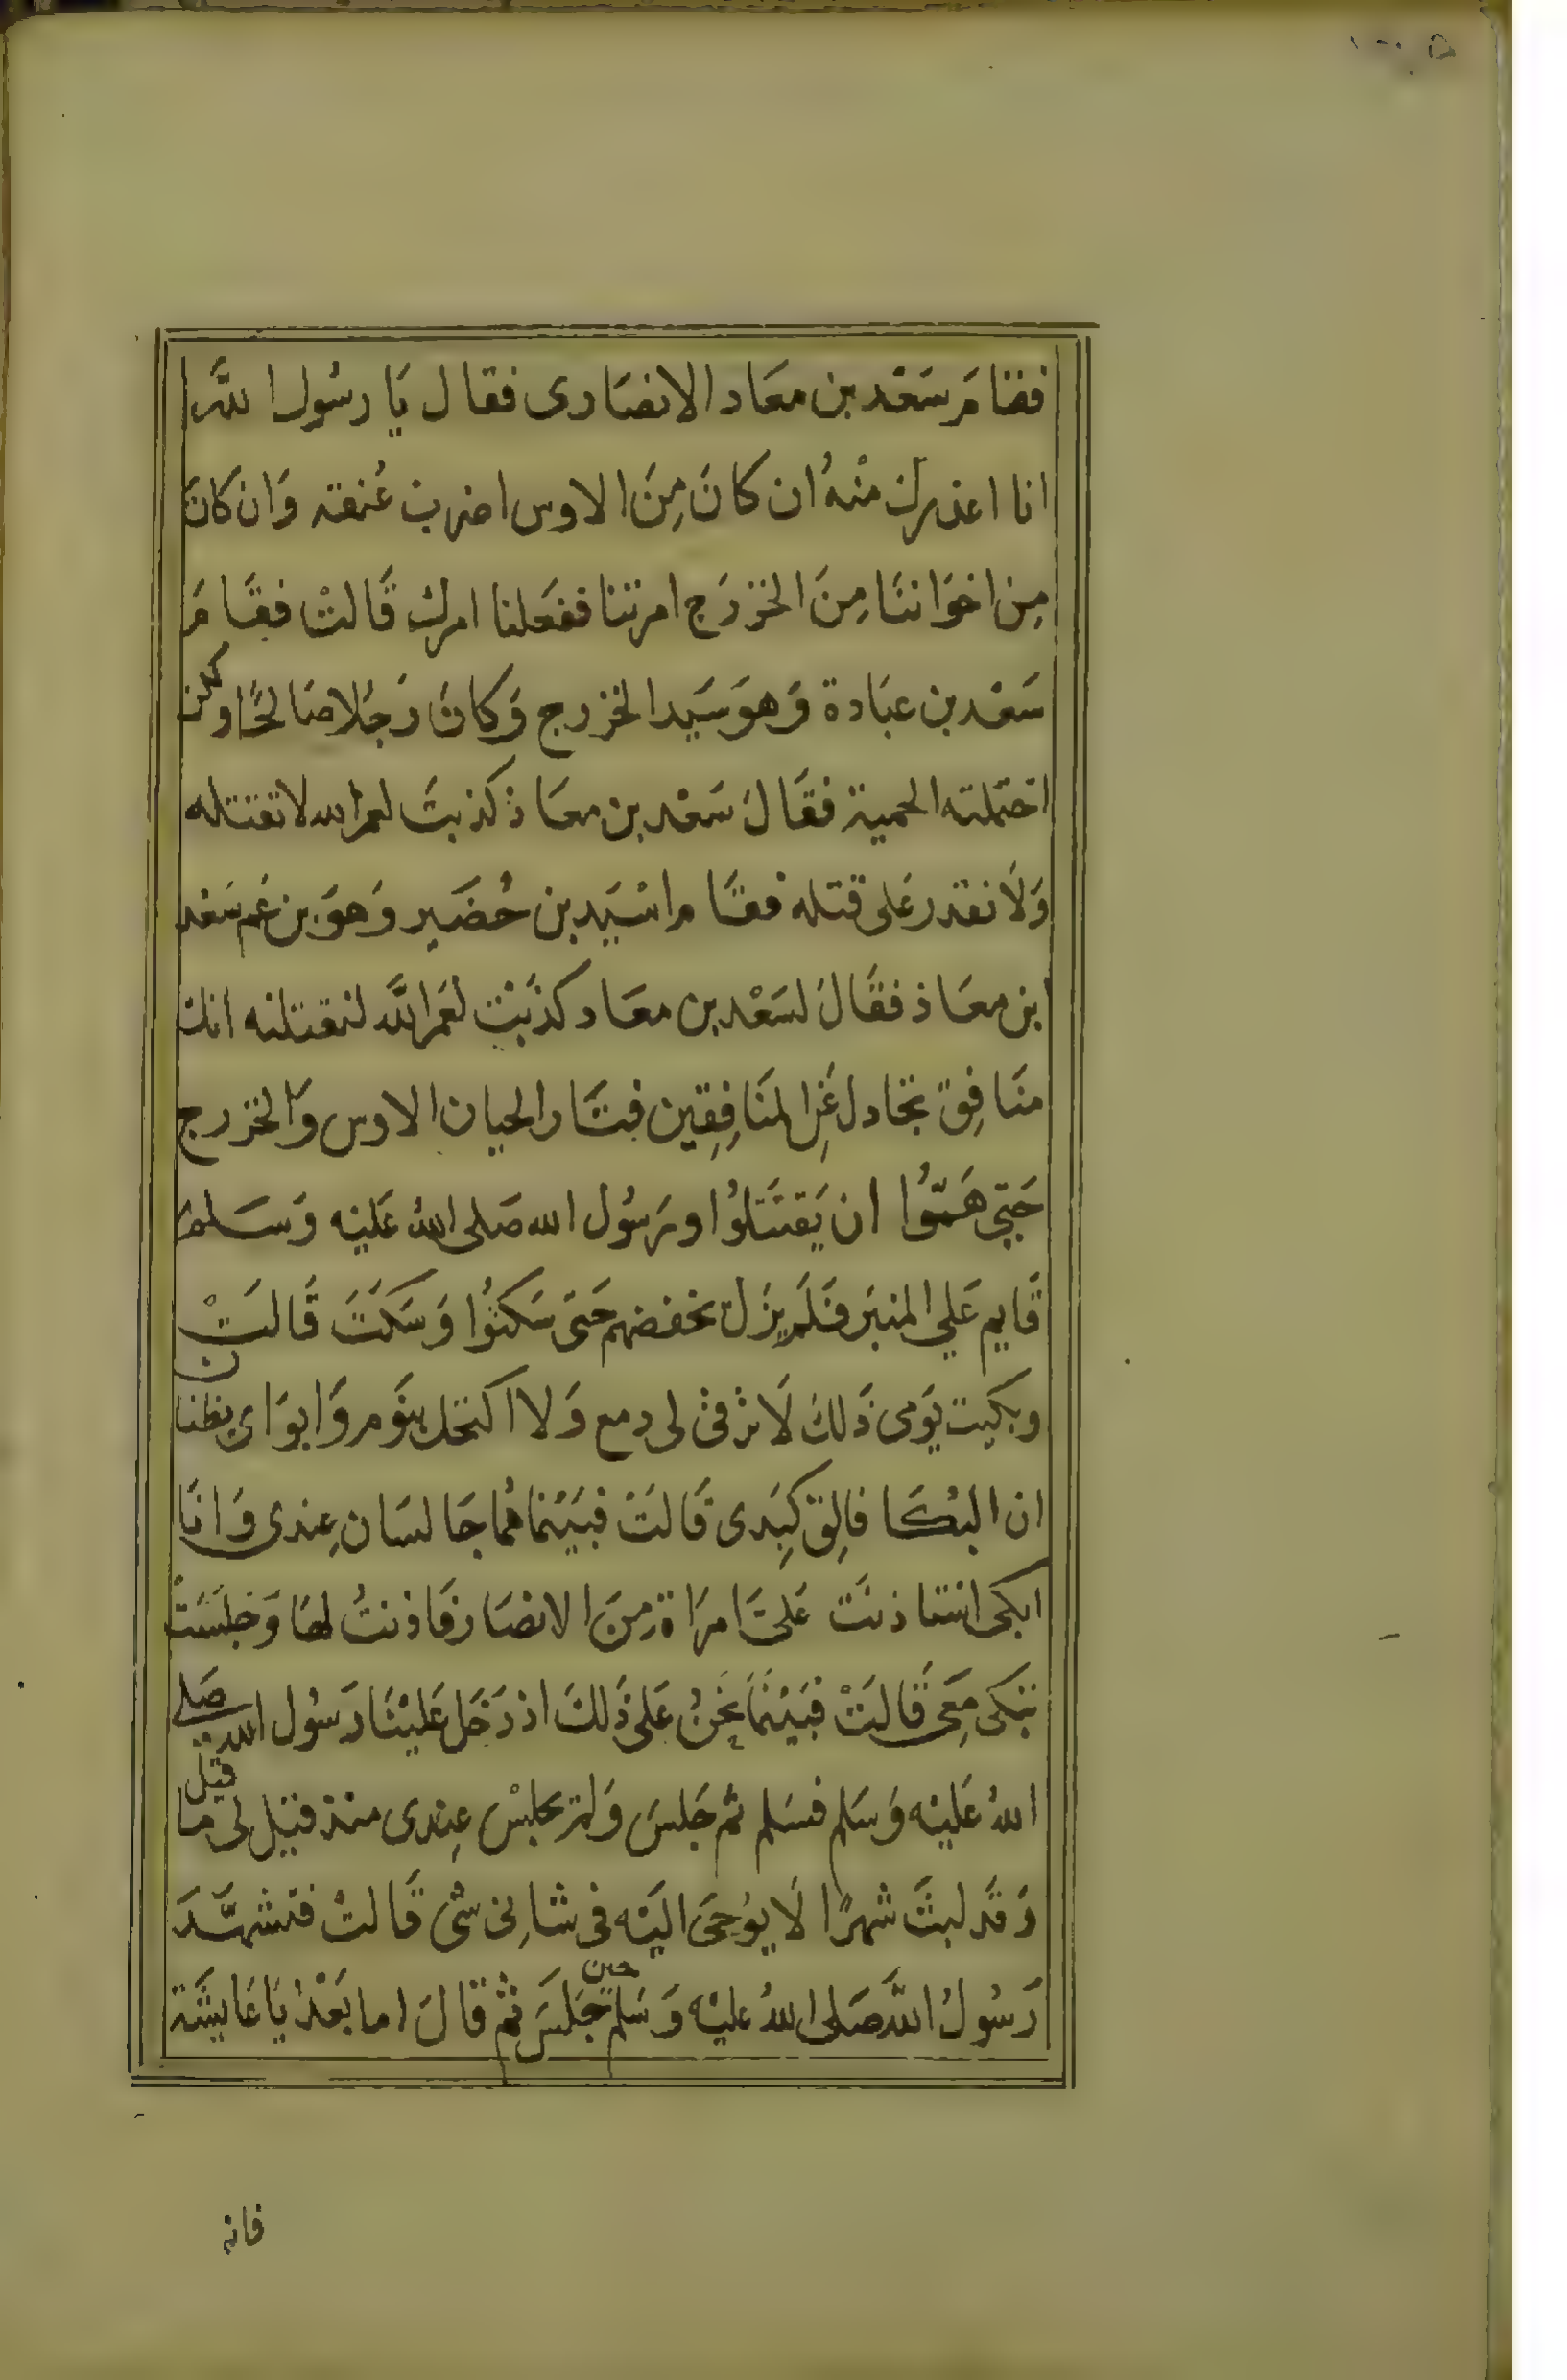 فقامَ سَعْد بن معَاد الانصَارى فقال يَا رسُول اللَّه
انا اعذرك منْهُ ان كانَ مِنَ الاوس اضرب عُنقه وَان كانَ
مِن اخوَاننَا مِنَ الخزرَج امرتنا ففعَلنا امرك قَالتْ فقَامَ
سَعْد بن عبَادة وَهوَ سَيد الخزرج وَكانَ رَجُلا صَالحًا ولكن
احتملته الحمية فقَالَ سَعْد بن معَاذ كذبتَ لعمر الله لا تقتله
وَلَا تقدر عَلى قتله فقَام اسَيد بن حُضَير وَهوَ بن عَم سَعْد
ابن معَاذ فقَالَ لسَعْد بن معَاد كذَبْت لعَمر اللَّه لنقتلنه انك
منَافِق تجَادل عَنِ المنَافِقِين فثَار الحيان الاوس وَالخزرج
حَتي هَمّوُا ان يَقتَتلوُا ورسُول الله صَلى اللهُ عَليْه وَسَلم
قَايم عَلي المنبَر فَلَم يزَل يخفضهم حَتىَ سَكتوُا وَسَكَتَ قَالتْ
وبكيت يَومى ذَلكَ لَا يرقىْ لى دمع وَلا اكتحل بنَوم وَابوَاى يظنان
ان البُكَا فالِق كَبِدى قَالتْ فبَيْنمَا هُما جَالسَان عِندى وَانَا
ابكى استاذنَت عَلىَّ امرَاة مِنَ الانصَار فَاذنتُ لهَا وَجلسَتْ
تبَكى مَعِى قَالتْ فبَيْنمَا نَحنُ عَلى ذَلكَ اذ دَخَل عَليْنَا رَسُول الله صَلى
اللهُ عَليْه وَسَلم فسَلم ثم جَلسَ وَلم يجلسْ عِندى منذ قيل لى ما قيل
وَقَد لبثَ شهرًا لَا يوُحىَ اليَه فى شانِى شى قَالتْ فتشهَّدَ
رَسُولُ اللَّه صَلى اللهُ عليْه وَسَلم حين جَلَسَ ثم قَالَ اما بَعْد يَا عَايشَة
فانه